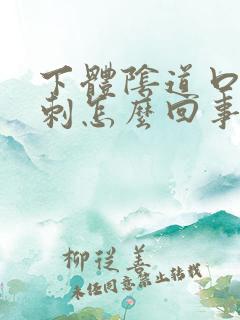 下體陰道口
刺怎麼回事
柳從善
未经同意禁止转载